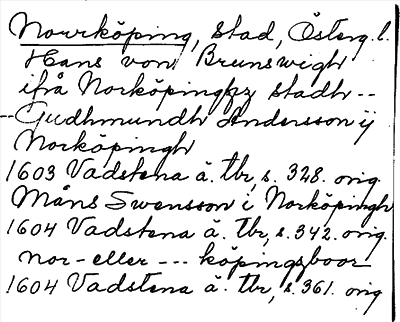 Norrköping, stad, Österg.l.
Hans von Brunswigh
ifrå Norköpingzz stadh --
-- Gudhmundh Andersson ij
Norköpingh
1603 Vadstena ä. tbr, s. 328. orig
Måns Swensson i Norköpingh
1604 Vadstena ä. tbr, s. 342. orig.
nor- eller --- köpingzboor
1604 Vadstena ä. tbr, s. 361. orig